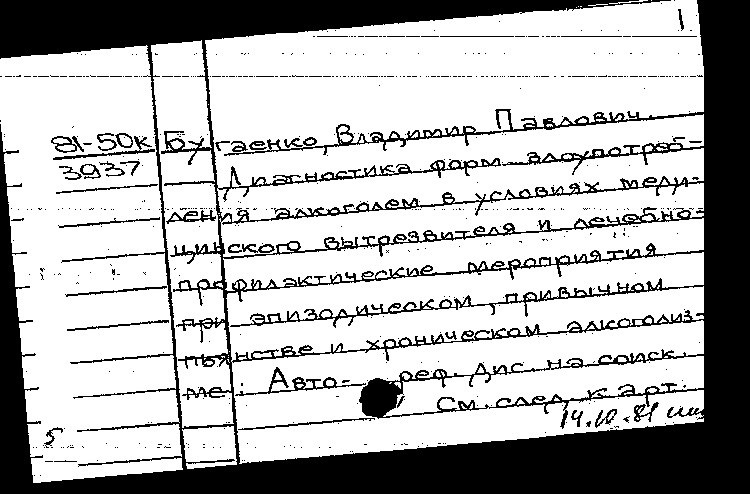 1
81-50к Бугаенко, Владимир Павлович.
3937 Диагностика форм злоупотреб-
ления алкоголем в условиях меди-
цинского вытрезвителя и лечебно-
профилактические мероприятия
при эпизодическом, привычном
пьянстве и хроническом алкоголиз-
ме: Авто- реф. дис. на соиск.
См. след. карт.
5 14.10.81